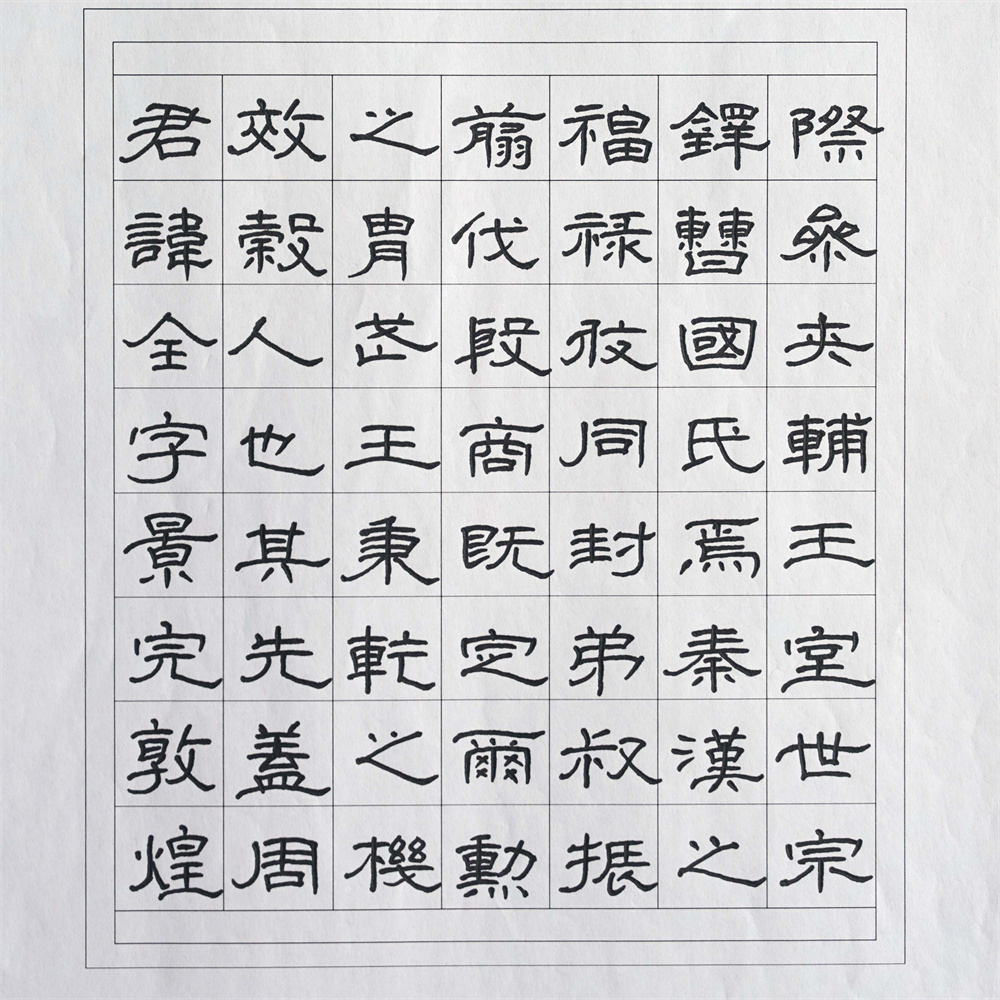 君諱全字景完敦煌
效穀人也其先蓋周
之胄武王秉乾之機
翦伐殷商既定爾勳
福祿攸同封弟叔振
鐸曹國氏焉秦漢之
際參夾輔王室世宗